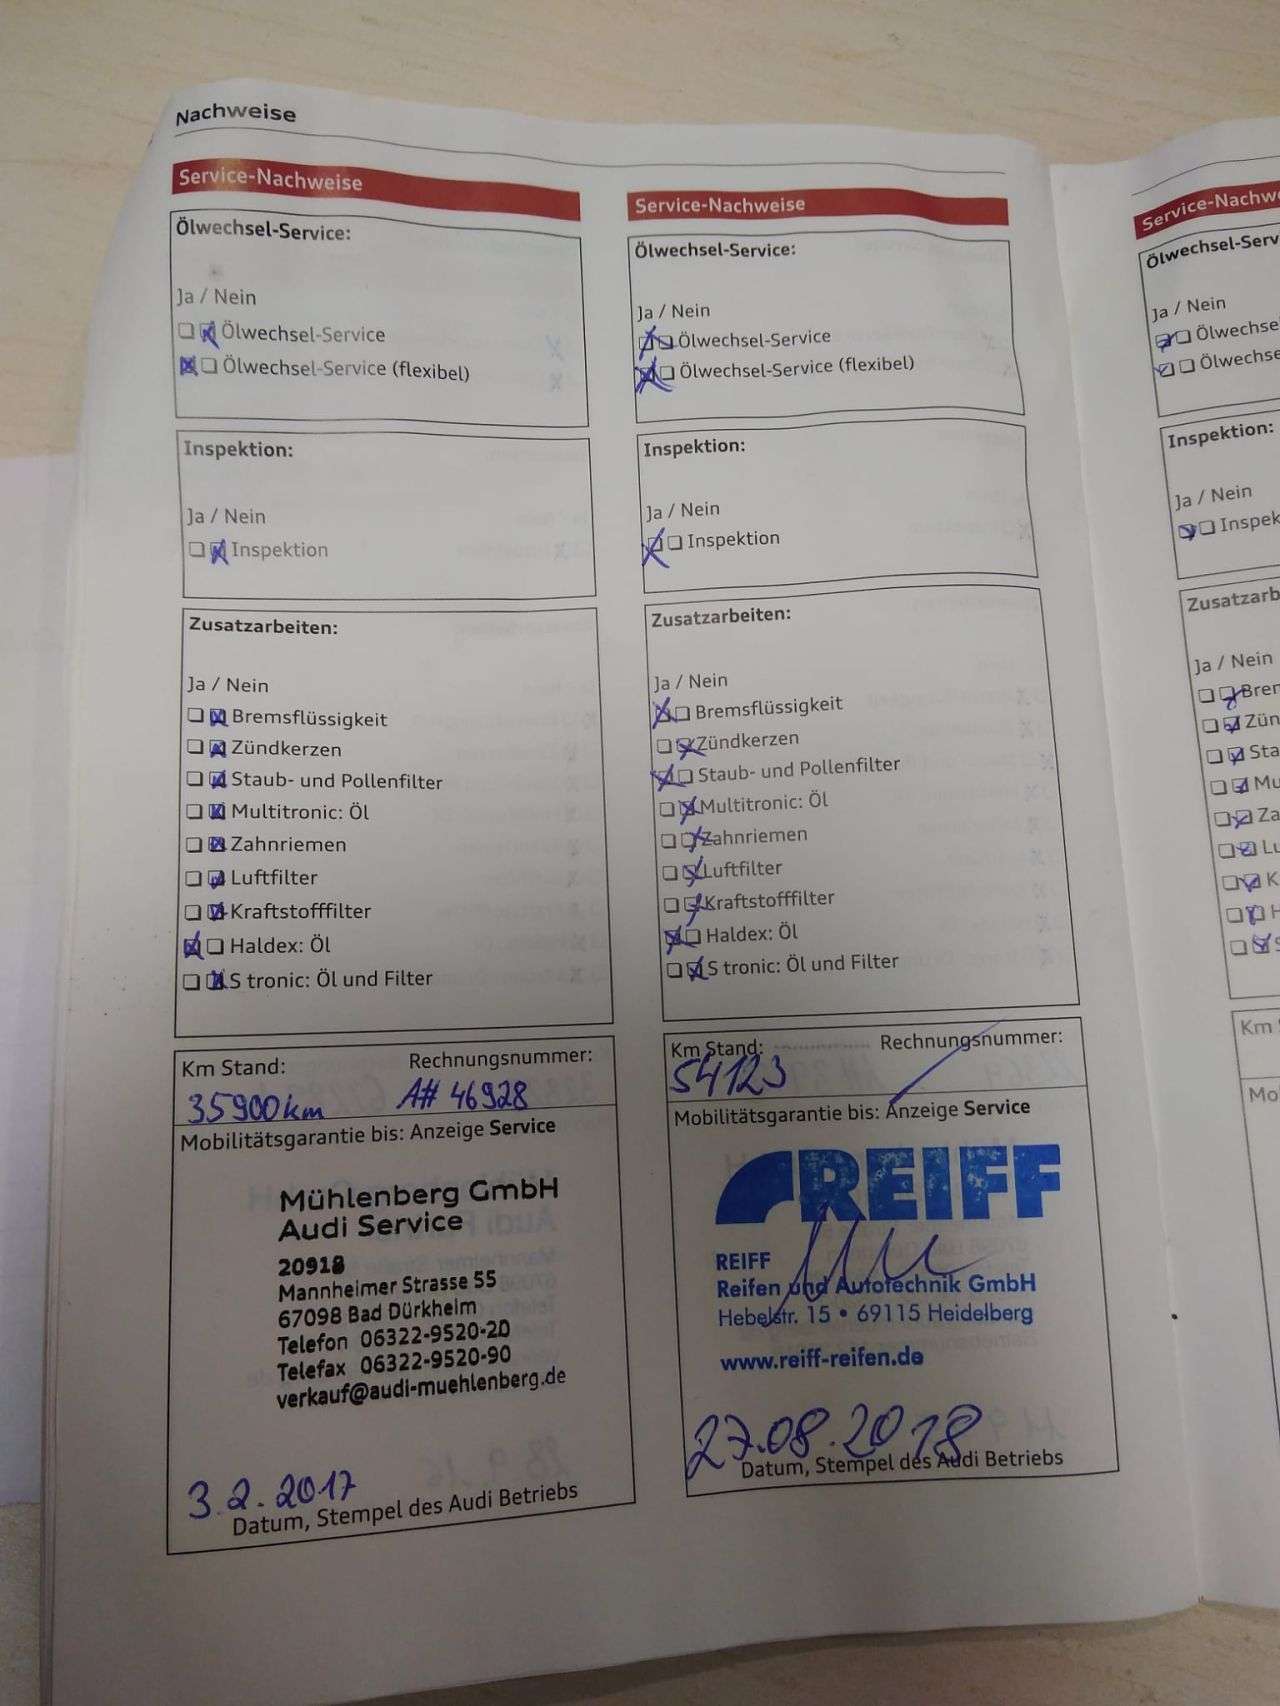 Nachweise
Service-Nachweise
Ölwechsel-Service:
Ja / Nein
Ölwechsel-Service
Ölwechsel-Service (flexibel)
Inspektion:
Ja / Nein
Inspektion
Zusatzarbeiten:
Ja / Nein
Bremsflüssigkeit
Zündkerzen
Staub- und Pollenfilter
Multitronic: Öl
Zahnriemen
Luftfilter
Kraftstofffilter
Haldex: Öl
S tronic: Öl und Filter
Km Stand: Rechnungsnummer:
35900km A# 46928
Mobilitätsgarantie bis: Anzeige Service
Mühlenberg GmbH
Audi Service
20918
Mannheimer Strasse 55
67098 Bad Dürkheim
Telefon 06322-9520-20
Telefax 06322-9520-90
verkauf@audi-muehlenberg.de
3.2.2017
Datum, Stempel des Audi Betriebs
Service-Nachweise
Ölwechsel-Service:
Ja / Nein
Ölwechsel-Service
Ölwechsel-Service (flexibel)
Inspektion:
Ja / Nein
Inspektion
Zusatzarbeiten:
Ja / Nein
Bremsflüssigkeit
Zündkerzen
Staub- und Pollenfilter
Multitronic: Öl
Zahnriemen
Luftfilter
Kraftstofffilter
Haldex: Öl
S tronic: Öl und Filter
Km Stand: Rechnungsnummer:
54123
Mobilitätsgarantie bis: Anzeige Service
REIFF
REIFF
Reifen und Autotechnik GmbH
Hebelstr. 15 • 69115 Heidelberg
www.reiff-reifen.de
27.08.2018
Datum, Stempel des Audi Betriebs
Service-Nachw
Ölwechsel-Serv
Ja / Nein
Ölwechse
Ölwechse
Inspektion:
Ja / Nein
Inspek
Zusatzarb
Ja / Nein
Brem
Zün
Sta
Mu
Za
Lu
K
H
S
Km
Mo